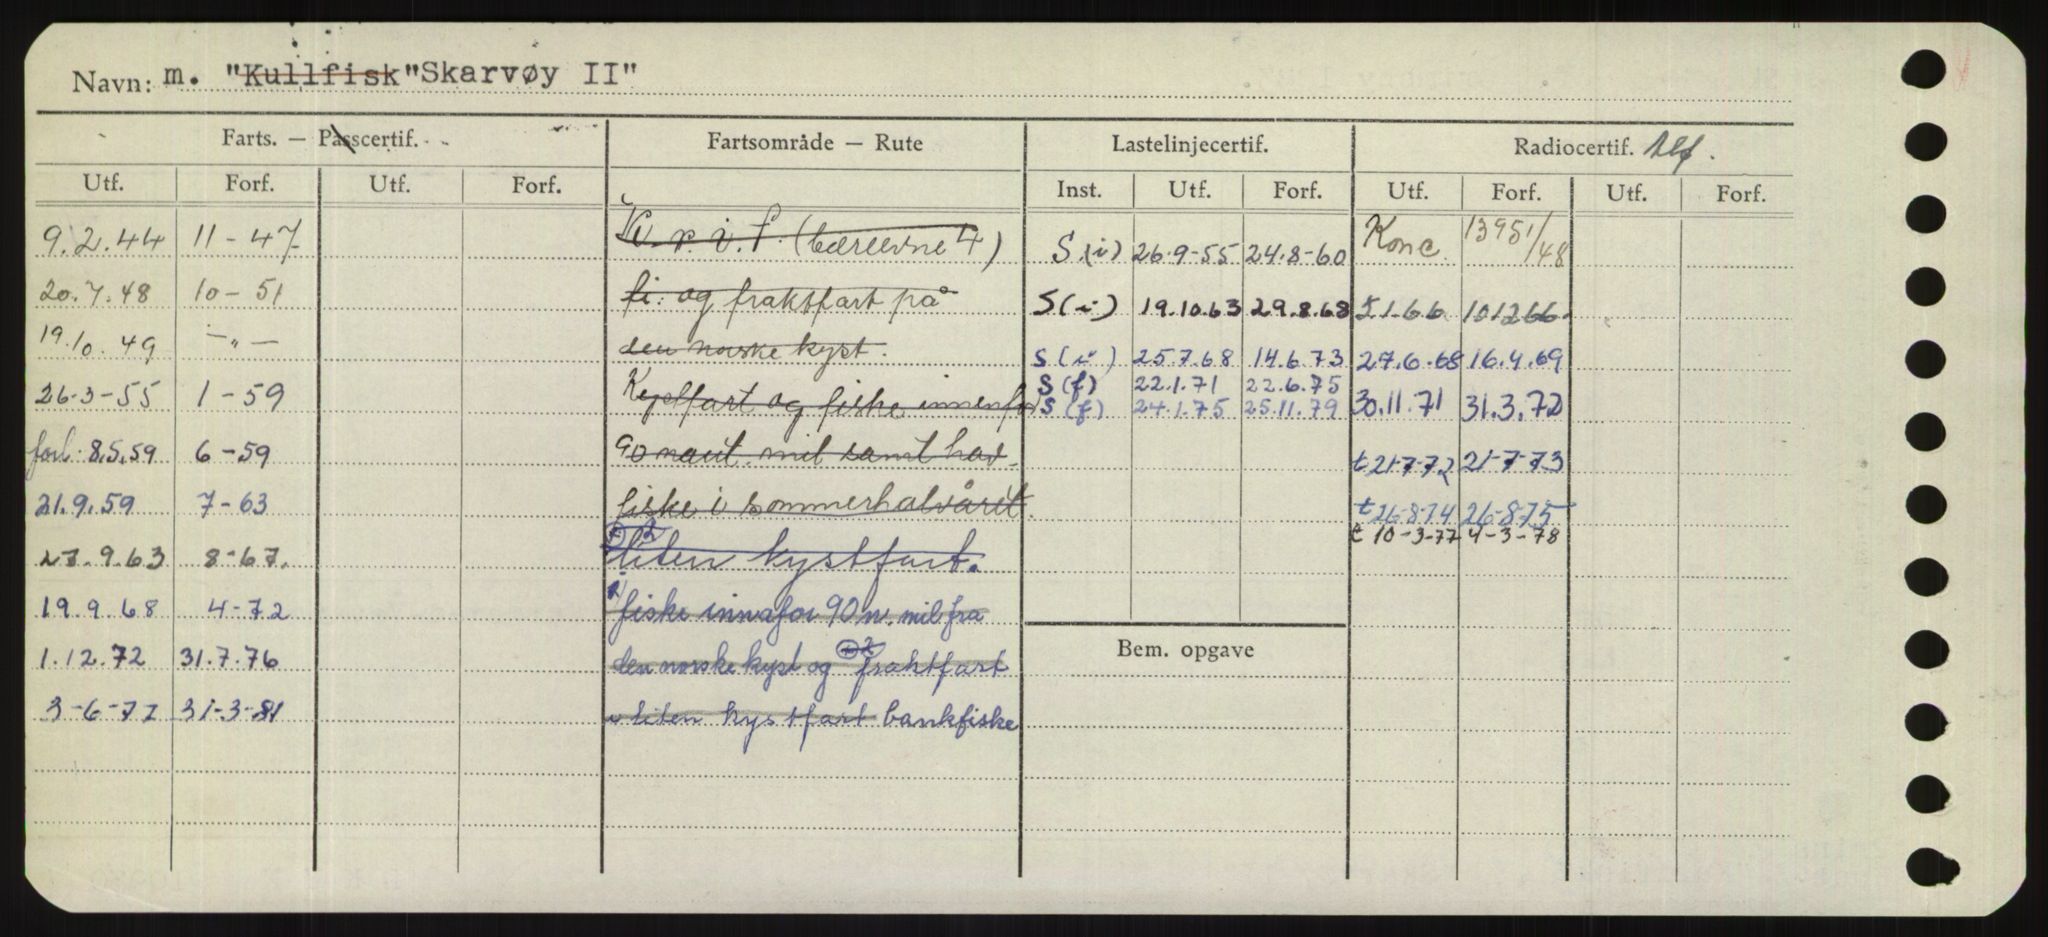 Navn: m. "Kullfisk" "Skarvøy II"
Farts. — Passcertif. Fartsområde — Rute Lastelinjecertif. Radiocertif. tlf.
Utf. Forf. Utf. Forf. Inst. Utf. Forf. Utf. Forf. Utf. Forf.
9.2.44 11-47 K.r.i.f. (bæreevne 4) S.(i) 26.9-55 24.8-60 Konc. 13951/48
20.7.48 10-51 fi. og fraktfart på S(i) 19.10.63 29.8.68 t 1.6.6 10.12.66
19.10.49 —"— den norske kyst. S(i) 25.7.68 14.6.73 27.6.68 16.4.69
S(f) 22.1.71 22.6.75
26-3-55 1-59 Kystfart og fiske innenfor S(f) 24.1.75 25.11.79 30.11.71 31.3.72
forl. 8.5.59 6-59 90 naut. mil samt hav- t 21-7-72 21-7-73
21.9.59 7-63 fiske i sommerhalvåret. t 26-8-74 26-8-75
27.9.63 8-67. liten kystfart. t 10-3-77 4-3-78
19.9.68 4-72 fiske innafor 90 n. mil fra
1.12.72 31.7.76 den norske kyst og fraktfart
3-6-77 31-3-81 i liten kystfart bankfiske
Bem. opgave